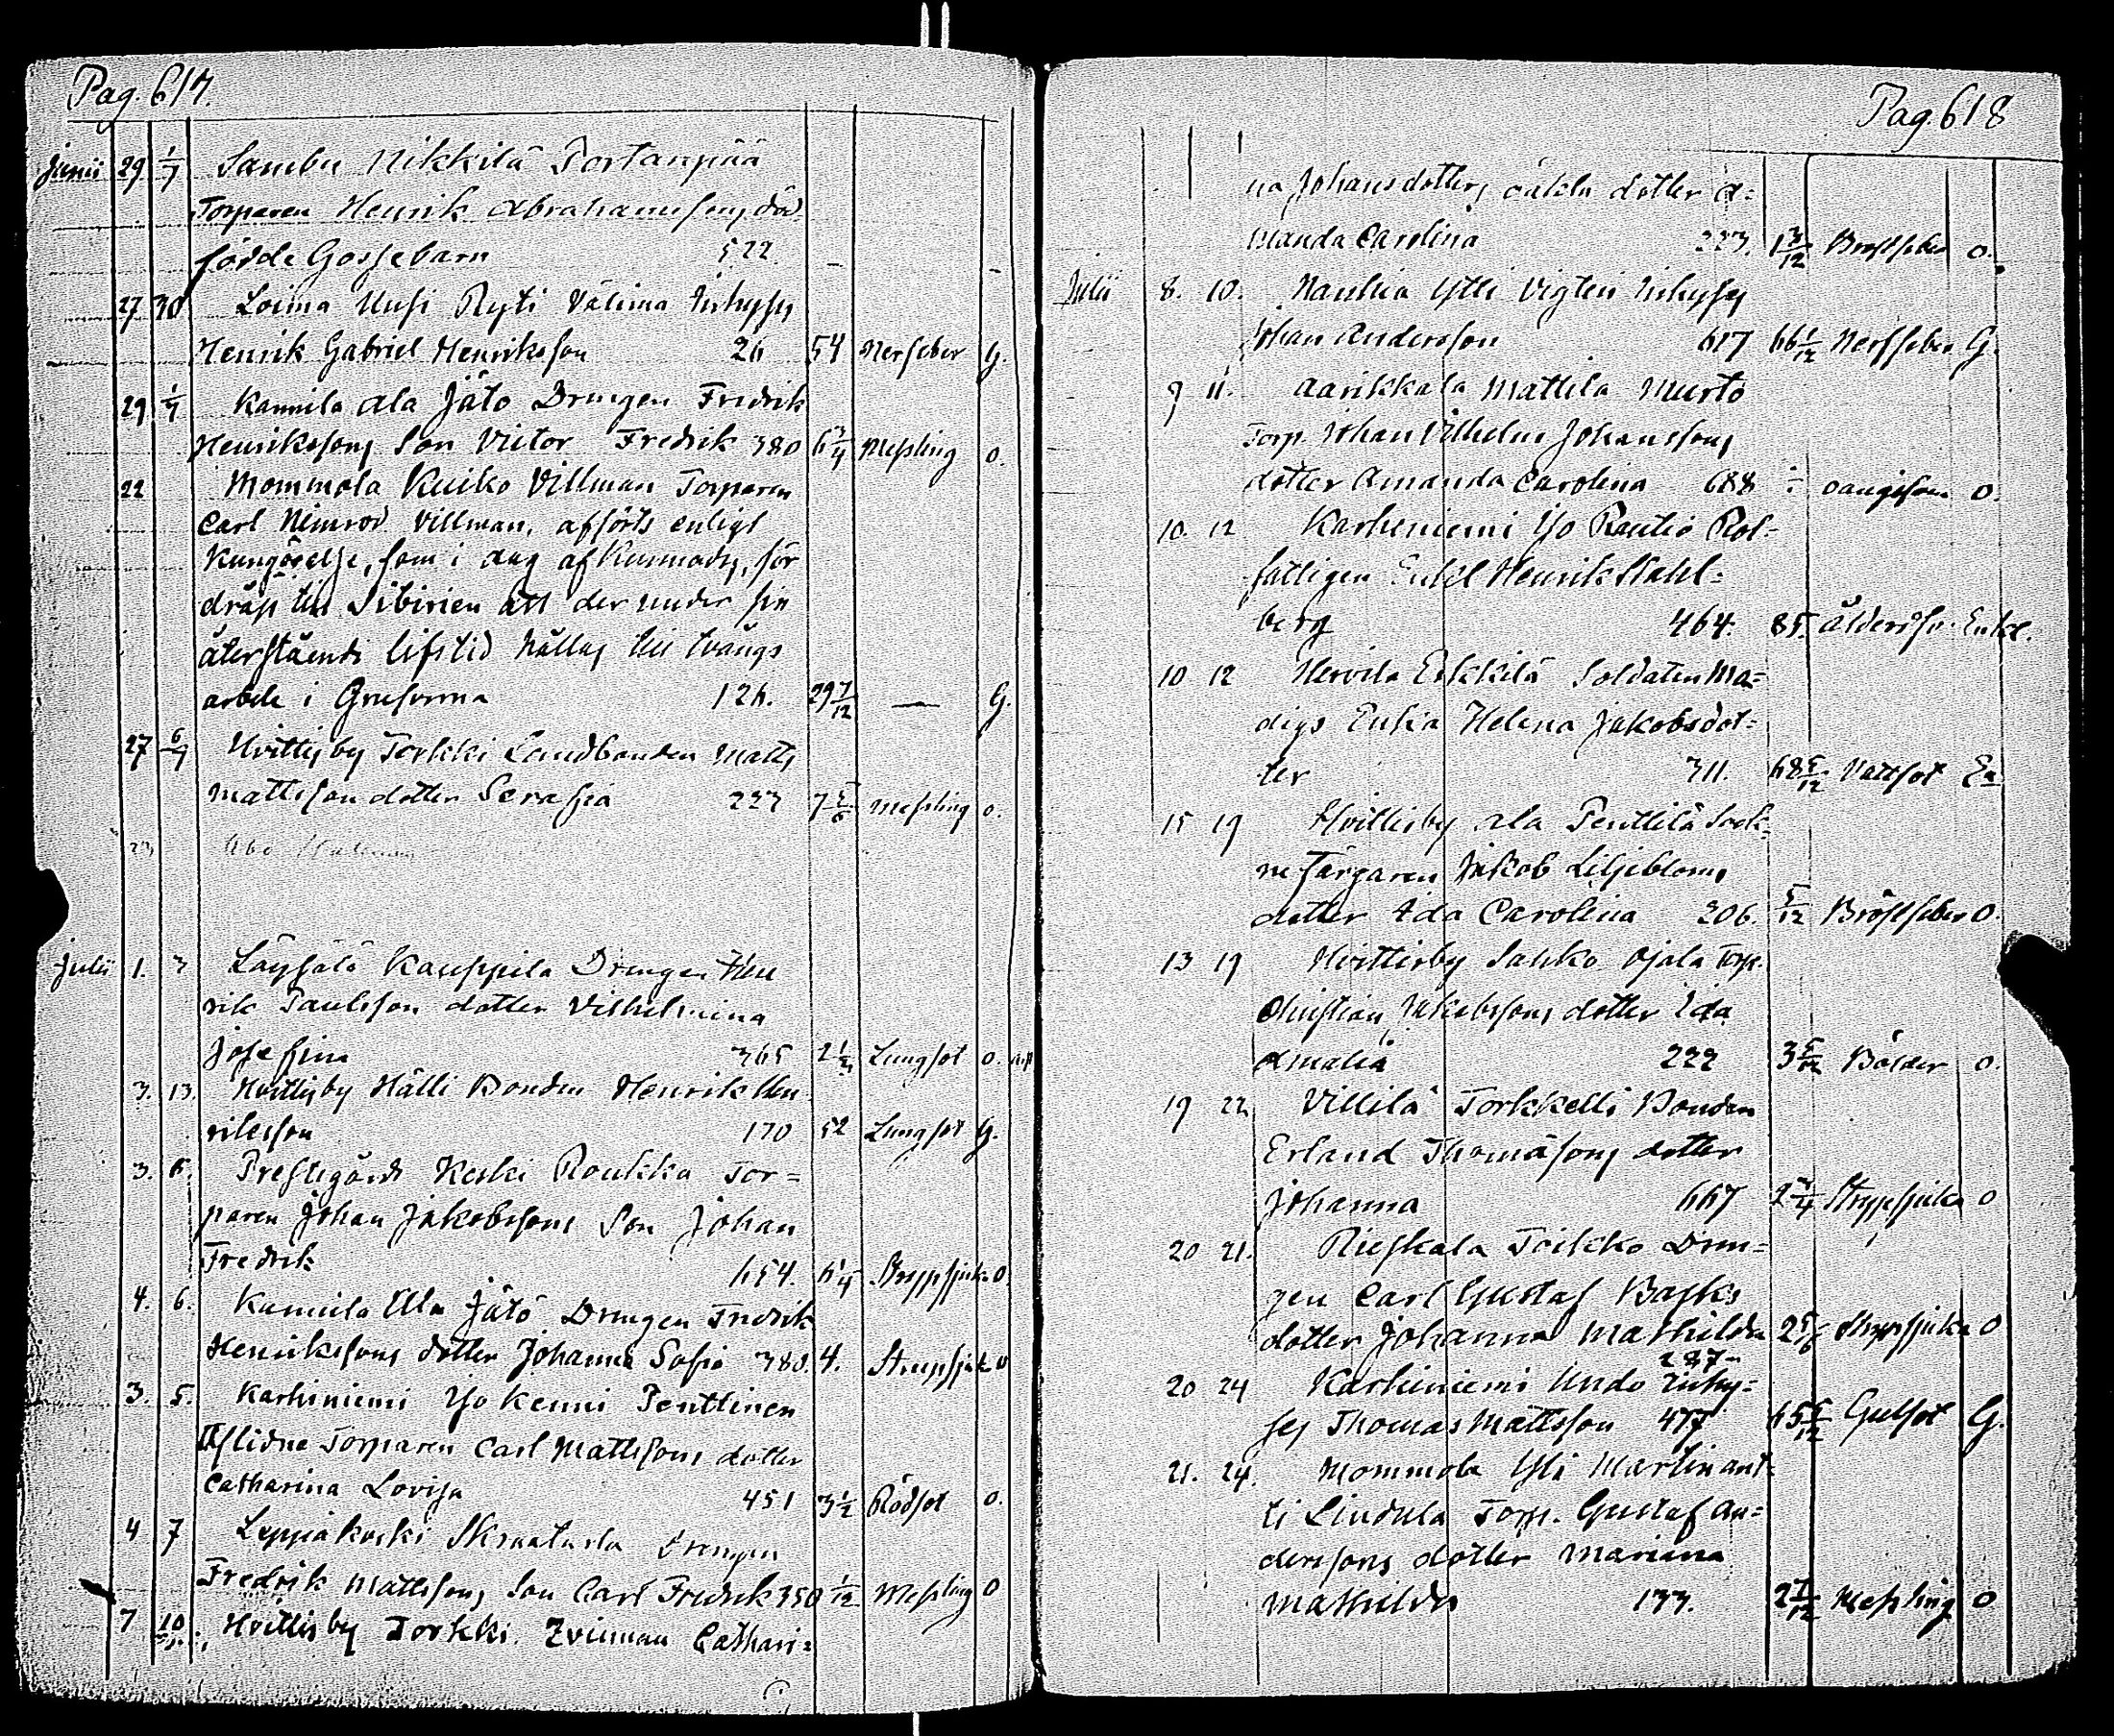 Pag. 617.
Junii 29 1/7 Sambu Nikkilä Portanpää
Torparen Henrik Abrahamsons död-
födde Gossebarn 522. — —
27 30 Loima Uusi Ryti Välima Inhyses
Henrik Gabriel Henriksson 26 54 Nerfeber G.
29 1/7 Kannila Ala Jätö Drengen Fredrik
Henrikssons Son Victor Fredrik 380 6 3/4 Messling O.
22 Mommola Kuiko Villman Torparen
Carl Nimrod Villman, afförts enligt
Kungörelse, som i dag afkunnades, för
dråp till Sibirien att der under sin
återstående lifstid hållas till tvångs
arbete i Grufvorna 126. 29 7/12 — G.
27 6/7 Hvittisby Torkki Landbonden Matts
Mattsson dotter Serafia 223 7 5/6 Messling O.
23 Åbo
Julii 1. 3 Läysälä Kauppila Drengen Hen
rik Paulsson dotter Vilhelmina
Josefina 365 2 1/3 Lungsot O.
3. 13. Hvittisby Hälli Bonden Henrik Hen
riksson 170 52 Lungsot G.
3. 6. Prestegårds Keski Roukka Tor=
paren Johan Jakobssons Son Johan
Fredrik 654. 6 1/4 Strypsjuka O.
4. 6. Kannila Ala Jätö Drengen Fredrik
Henrikssons dotter Johanna Sofia 380. 4. Strupsjuk O
3. 5. Karhiniemi Yjo Kenni Penttinen
Aflidne Torparen Carl Mattssons dotter
Catharina Lovisa 451 3 1/2 Rödsot O.
4 7 Leppäkoski Skraatarla Drengen
Fredrik Mattssons Son Carl Fredrik 350 1/12 Messling O
7 10 Hvittisby Torkki Cathari=
Pag. 618
na Johansdotters oäkta dotter A=
manda Carolina 223. 1 3/12 Bröstfeber O.
Julii 8. 10. Nanhia Ylli Vigteri Inhyses
Johan Andersson 617 66 1/12 Nerffeber G.
9 11. Aarikkala Mattila Murto
Torp. Johan Vilhelm Johanssons
dotter Amanda Carolina 688 O.
10. 12 Karheniemi Yjo Rautio Rot=
fattigen Enkl Henrik Stahl=
berg 464. 85. Ålderdsv. Enkl.
10 12 Hervila Erkkilä Soldaten Ma=
digs Enka Helena Jakobsdot=
ter 311. 68 5/12 Vattsot Ea
15 19 Hvittisby Ala Penttilä Sock=
ne färgaren Jakob Liljebloms
dotter Ida Carolina 206. 5/12 Bröstfeber O.
13 19 Hvittisby Sahko Ojala Torp.
Christian Jakobssons dotter Ida
Amalia 222 3 5/12 Bölder O.
19 22 Villilä Torkkelli Bonden
Erland Thomassons dotter
Johanna 667 2 3/4 Strypsjuka O
20 21. Rieskala Toikko Dren=
gen Carl Gustaf Basks
dotter Johanna Mathilda 2 5/6 Strypsjuka O
287.
20 24 Karhiniemi Undo Inhy=
ses Thomas Mattsson 477 65 5/12 Gulsot G.
21. 24. Mommola Yli Martin ant=
ti Lindula Torp. Gustaf An=
derssons dotter Mariana
Mathilda 133. 2 7/12 Messling O